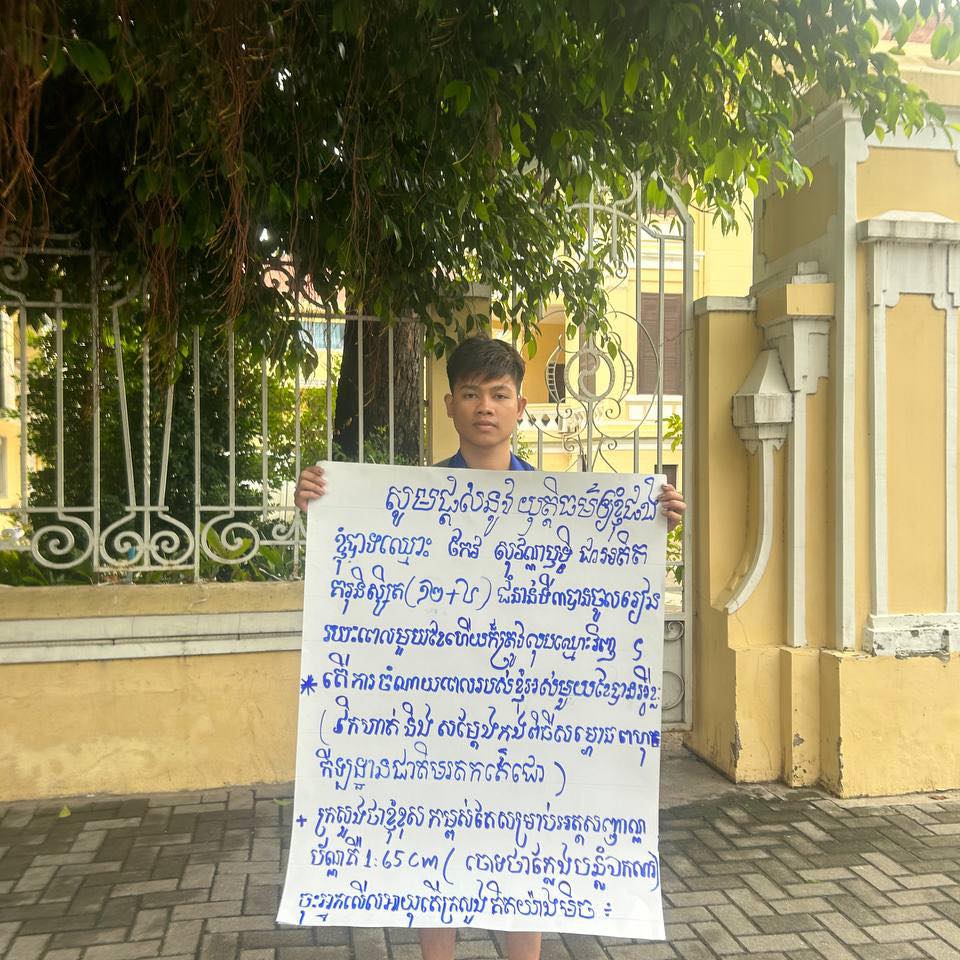 សូមផ្តល់នូវ យុត្តិធម៌ឲ្យខ្ញុំផង
ខ្ញុំបាទឈ្មោះ កែវ សុវណ្ណឫទ្ធិ ជាអតីត
គរុនិស្សិត(១២+៤) ជំនាន់ទី៣បានចូលរៀន
រយះពេលមួយខែហើយក៏ត្រូវលុបឈ្មោះវិញ
* តើការចំណាយពេលរបស់ខ្ញុំអស់មួយខែបានអ្វីខ្លះ
(វឹកហាត់ និង សម្តែងក្នុងពិធីសម្ពោធ ពហុ
កីឡដ្ឋានជាតិមរតកតេជោ)
+ ក្រសួងថាខ្ញុំខុស កម្ពស់តែសម្រាប់អត្តសញ្ញាណ
ប័ណ្ណគឺ 1:65cm ( ចោទថាក្លែងបន្លំឯកសារ)
ចុះអ្នកលើសអាយុតើក្រសួងគិតយ៉ាងមិច ÷